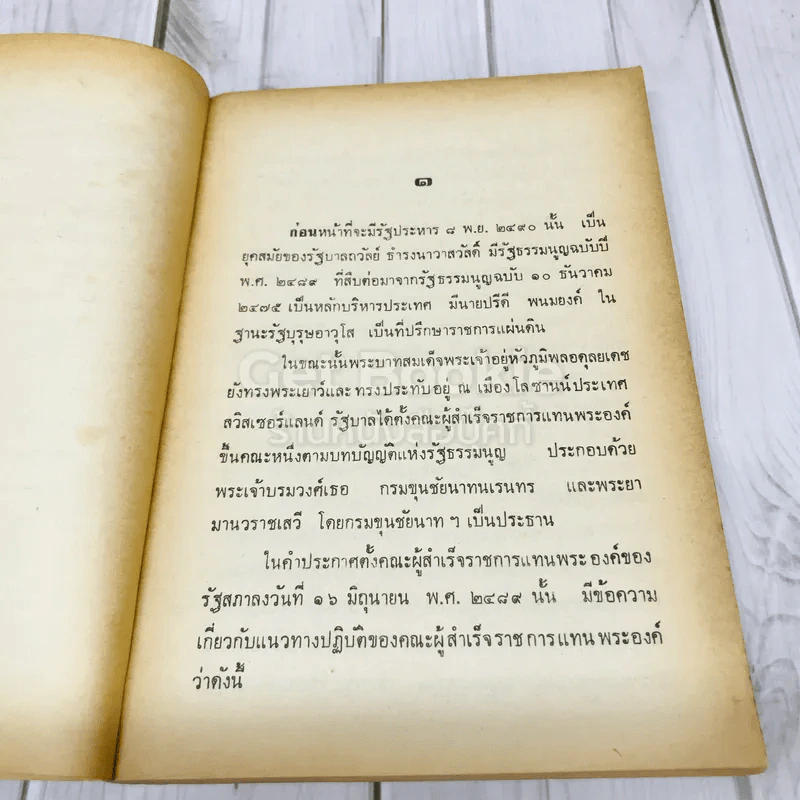 ๑
ก่อนหน้าที่จะมีรัฐประหาร ๘ พ.ย. ๒๔๙๐ นั้น เป็น
ยุคสมัยของรัฐบาลถวัลย์ ธำรงนาวาสวัสดิ์ มีรัฐธรรมนูญฉบับปี
พ.ศ. ๒๔๘๙ ที่สืบต่อมาจากรัฐธรรมนูญฉบับ ๑๐ ธันวาคม
๒๔๗๕ เป็นหลักบริหารประเทศ มีนายปรีดี พนมยงค์ ใน
ฐานะรัฐบุรุษอาวุโส เป็นที่ปรึกษาราชการแผ่นดิน
ในขณะนั้นพระบาทสมเด็จพระเจ้าอยู่หัวภูมิพลอดุลยเดช
ยังทรงพระเยาว์และทรงประทับอยู่ ณ เมืองโลซานน์ประเทศ
สวิสเซอร์แลนด์ รัฐบาลได้ตั้งคณะผู้สำเร็จราชการแทนพระองค์
ขึ้นคณะหนึ่งตามบทบัญญัติแห่งรัฐธรรมนูญ ประกอบด้วย
พระเจ้าบรมวงศ์เธอ กรมขุนชัยนาทนเรนทร และพระยา
มานวราชเสวี โดยกรมขุนชัยนาท ฯ เป็นประธาน
ในคำประกาศตั้งคณะผู้สำเร็จราชการแทนพระองค์ของ
รัฐสภาลงวันที่ ๑๖ มิถุนายน พ.ศ. ๒๔๘๙ นั้น มีข้อความ
เกี่ยวกับแนวทางปฏิบัติของคณะผู้สำเร็จราชการแทนพระองค์
ว่าดังนี้
Get Bookie
ร้านหนังสือบุ๊คกี้